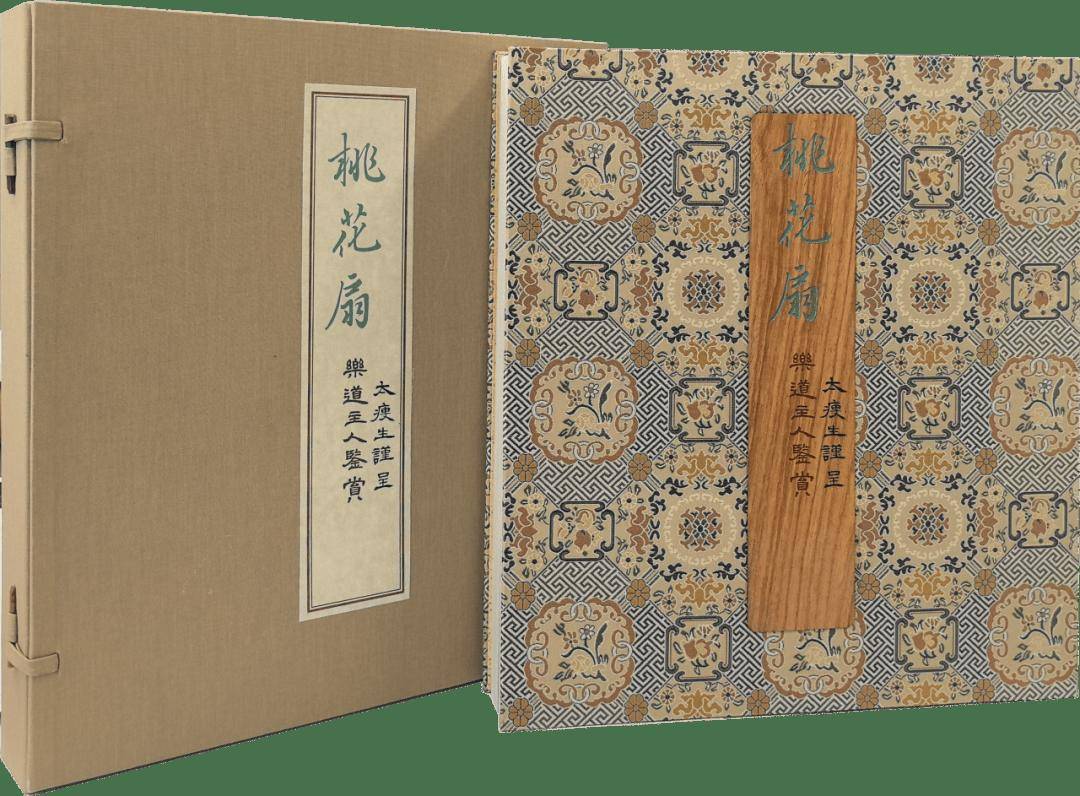 桃花扇
太瘦生謹呈
樂道主人鑒賞
桃花扇
太瘦生謹呈
樂道主人鑒賞